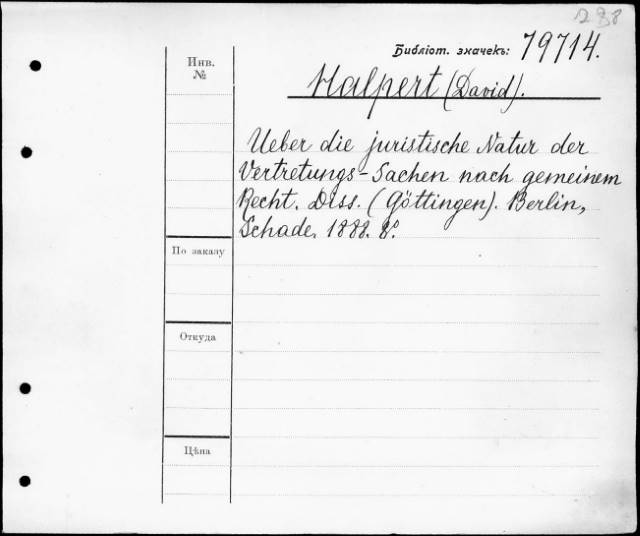 298
Библіот. значекъ: 79714.
Инв.
№
Halpert (David).
Ueber die juristische Natur der
Vertretungs-Sachen nach gemeinem
Recht. Diss. (Göttingen). Berlin,
Schade. 1888. 8º.
По заказу
Откуда
Цѣна